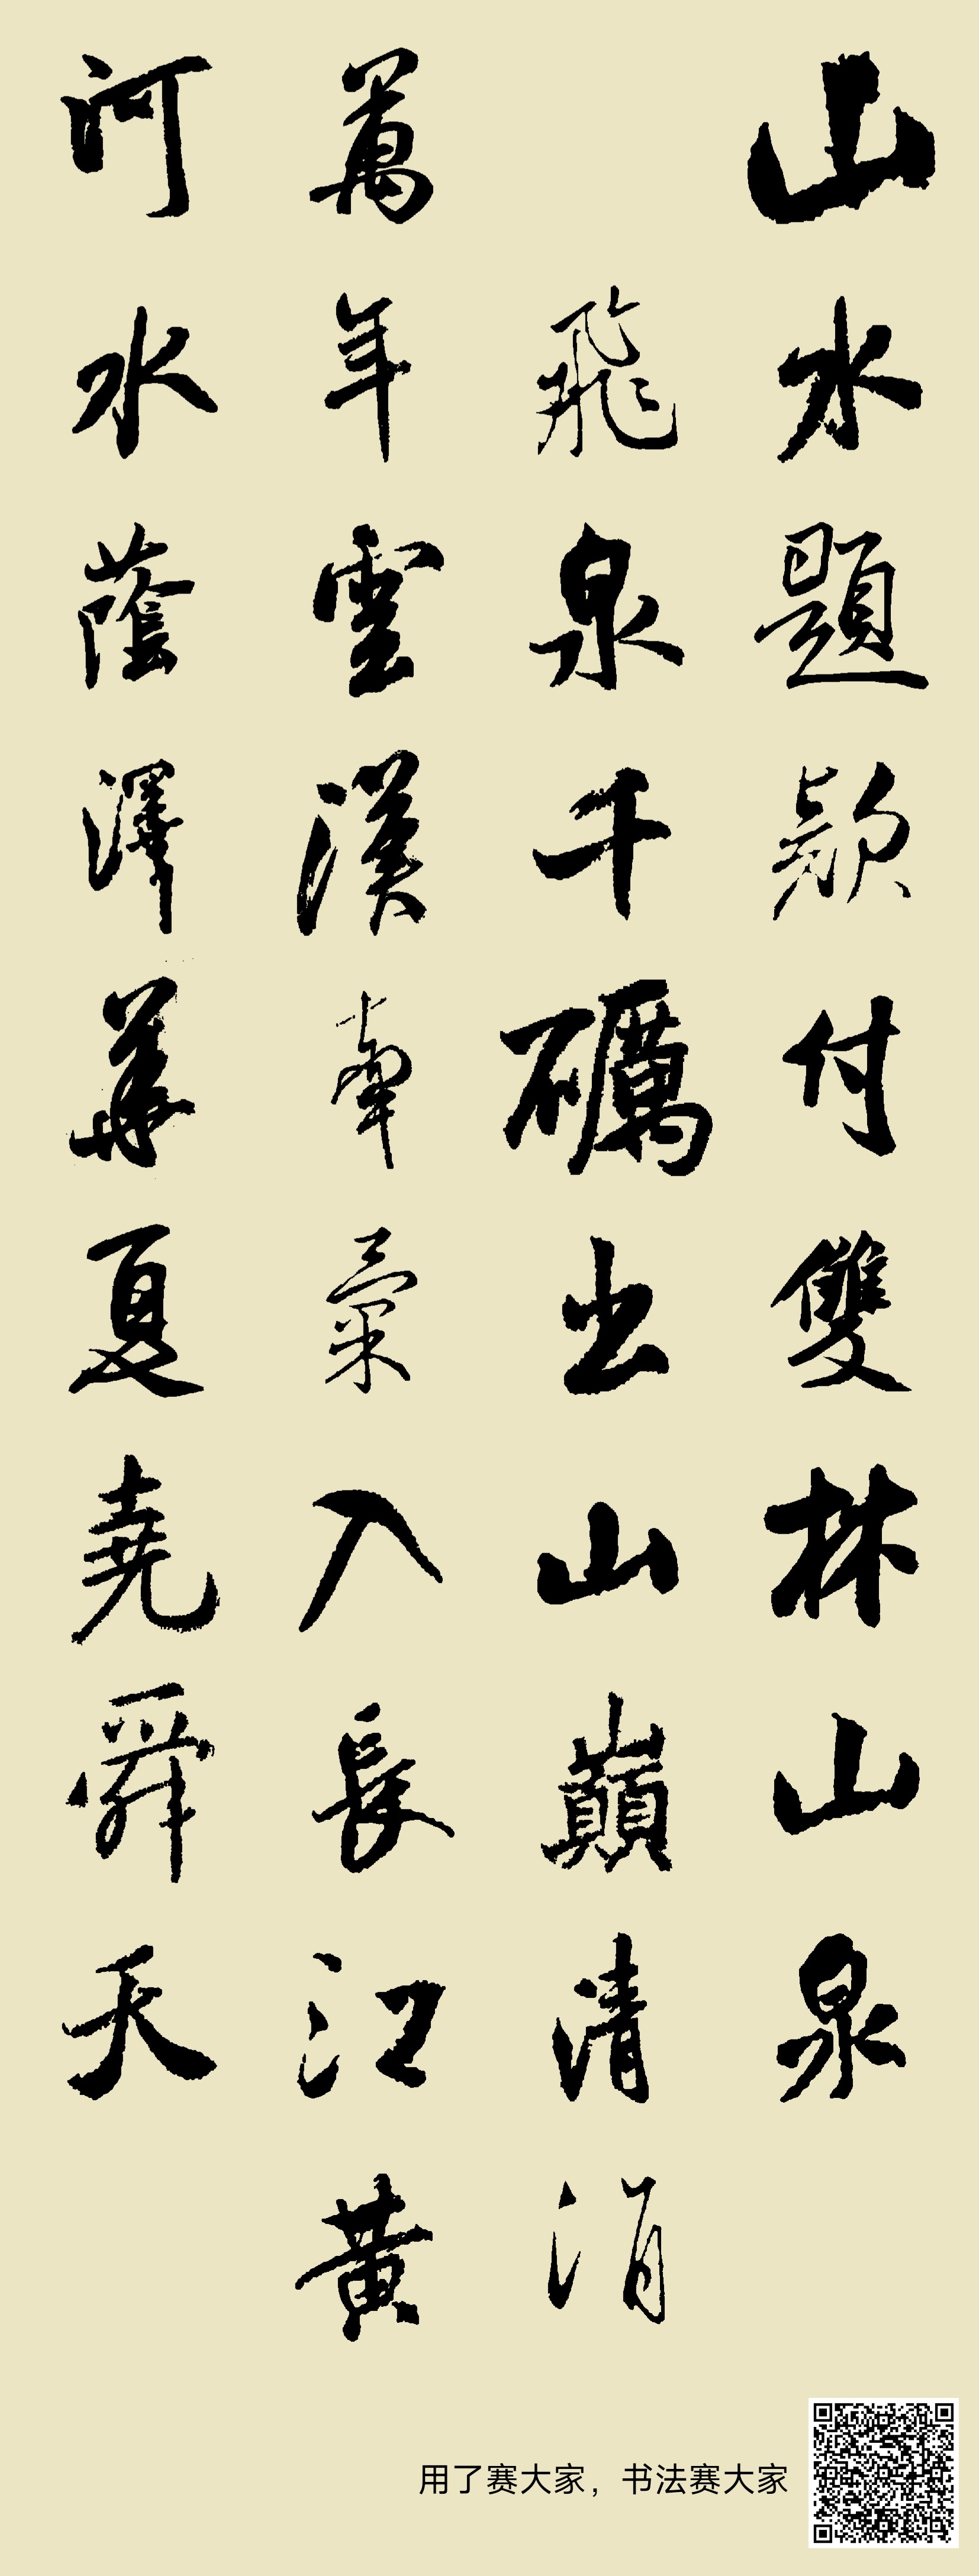 山水題款付雙林山泉
飛泉千礪出山巔清涓
萬年雲漢牽氣入長江黃
河水蔭澤華夏堯舜天
用了赛大家，书法赛大家